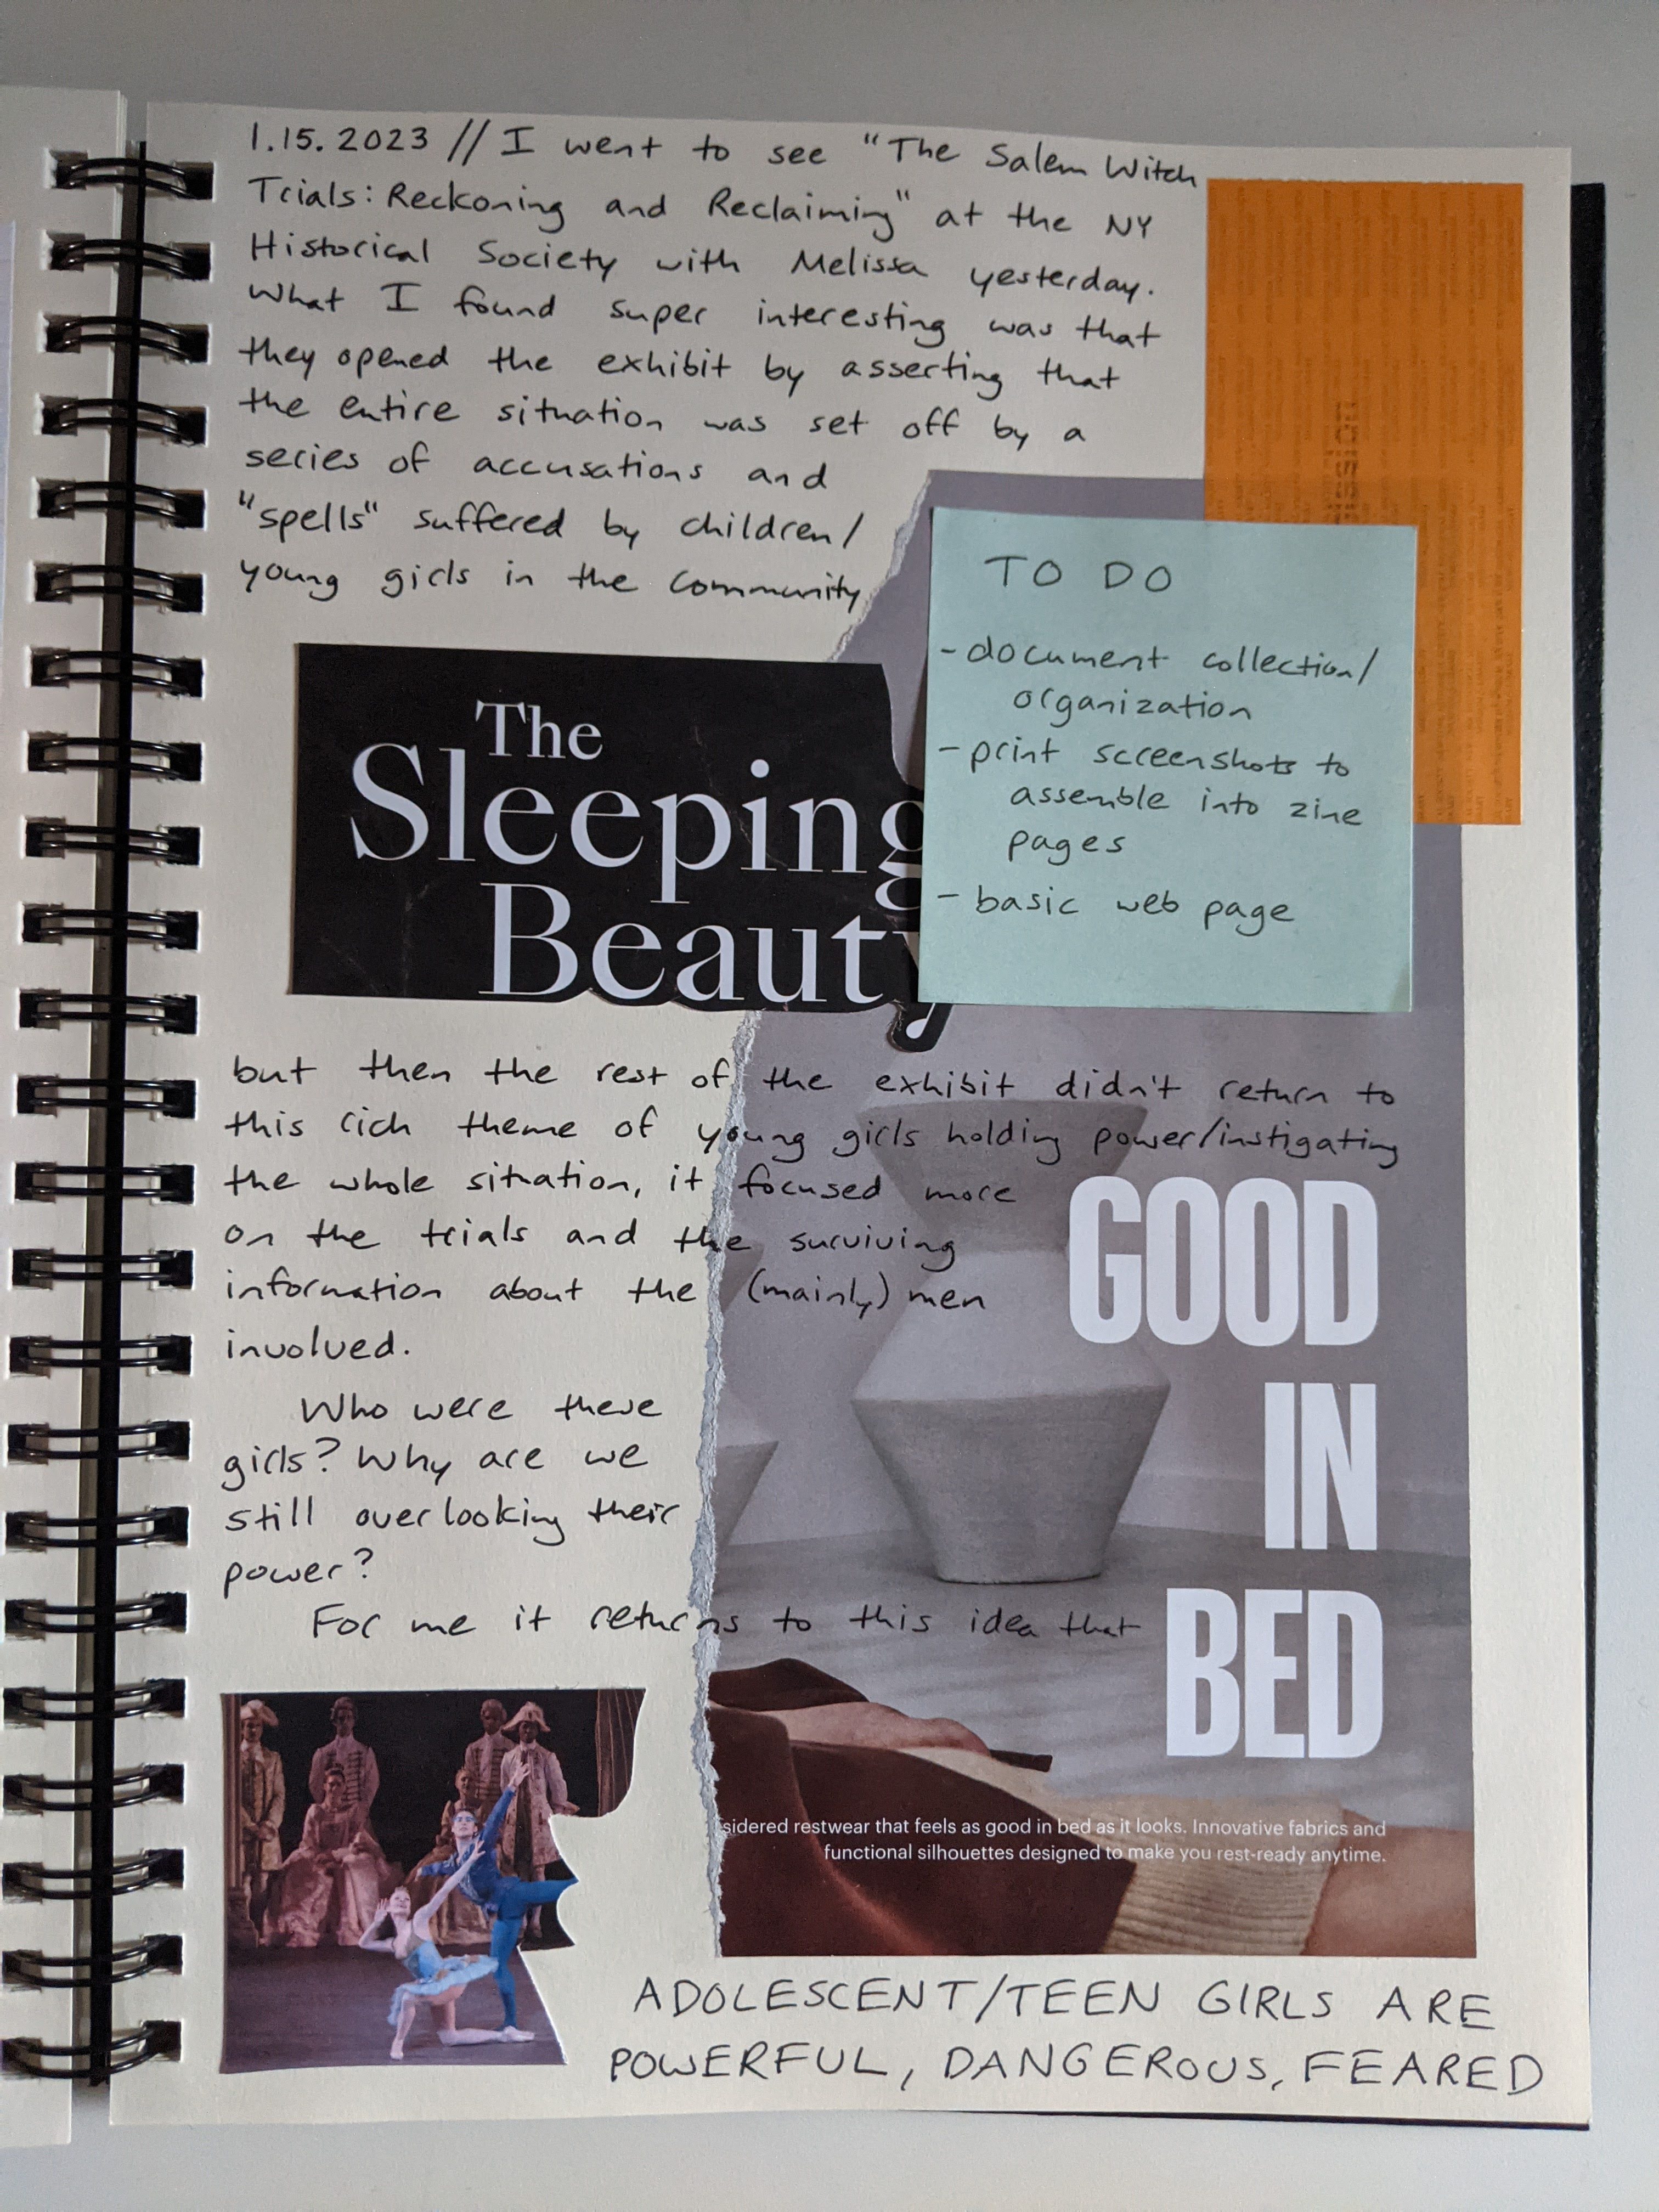 1.15.2023 // I went to see "The Salem Witch
Trials: Reckoning and Reclaiming" at the NY
Historical Society with Melissa yesterday.
What I found super interesting was that
they opened the exhibit by asserting that
the entire situation was set off by a
series of accusations and
"spells" suffered by children/
young girls in the community
TO DO
- document collection/
organization
- print screenshots to
assemble into zine
pages
- basic web page
The
Sleeping
Beauty
but then the rest of the exhibit didn't return to
this rich theme of young girls holding power/instigating
the whole situation, it focused more
on the trials and the surviving
information about the (mainly) men
involved.
Who were these
girls? Why are we
still overlooking their
power?
For me it returns to this idea that
GOOD
IN
BED
sidered restwear that feels as good in bed as it looks. Innovative fabrics and
functional silhouettes designed to make you rest-ready anytime.
ADOLESCENT/TEEN GIRLS ARE
POWERFUL, DANGEROUS, FEARED